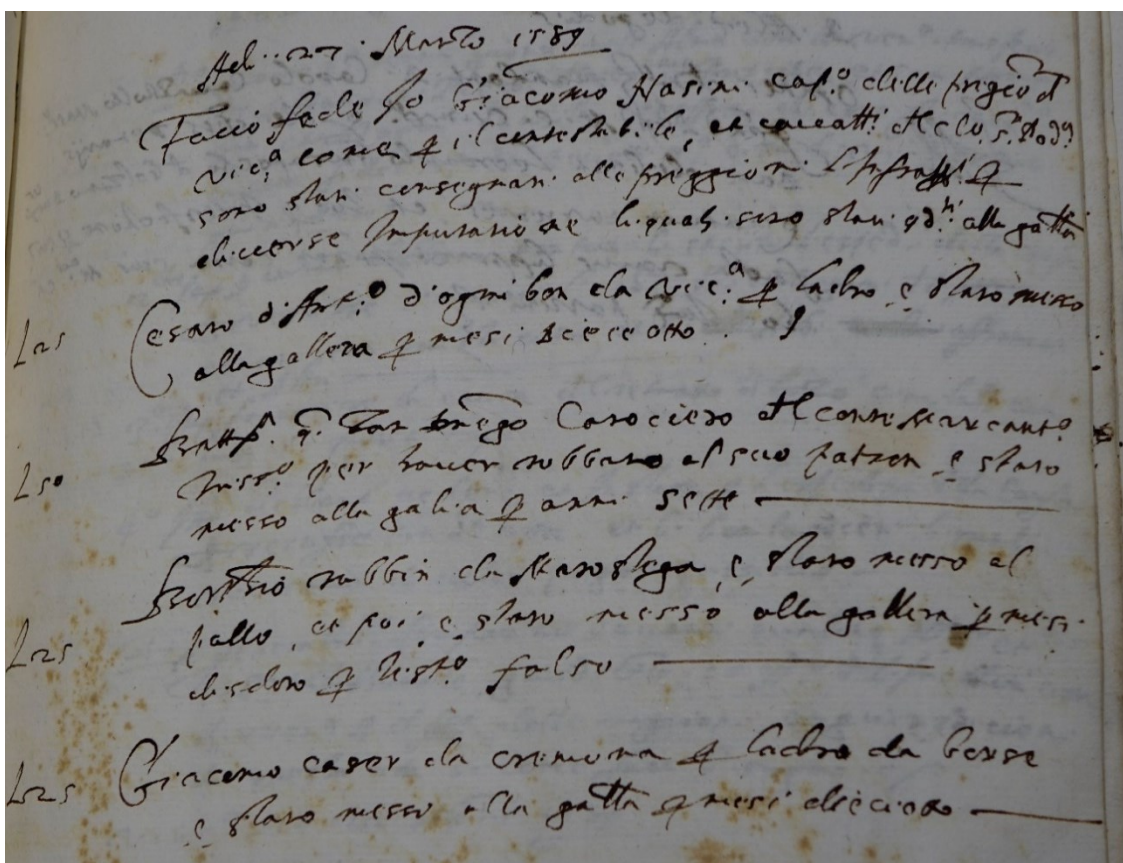 Adi 27 Marzo 1589
Faccio fede Io Giacomo Nasini cap.o delle pregiō d
Vic.a come p il contestabile, et cavcatti del cl.
sono stati consegnati alle preggioni l'infra p
diverse Imputatione li quali sono stati alla gatta
L 25 Cesaro d'Ant.o d'ogni ben da Vic.a p ladro è stato messo
alla gallera p mesi dieceotto
L 50 q. Zan Carociero del conte Marcant.o
per haver robbato al suo patron è stato
messo alla galia p anni sette
L 25 rubbin da Marostega è stato messo al
pallo, et poi è stato messo alla gallera p mesi
disdoto p falso
L 25 Giacomo caser da cremona p ladro da borse
è stato messo alla gatta p mesi diecioto